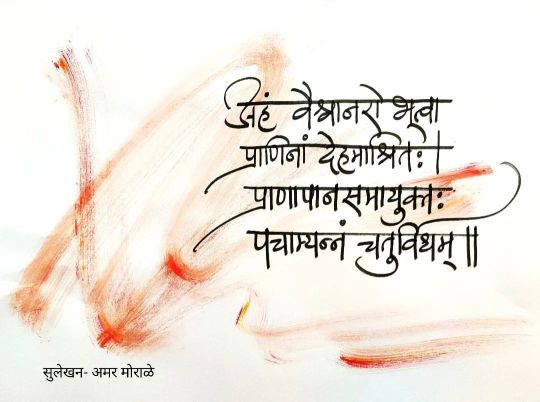 अहं वैश्वानरो भूत्वा
प्राणिनां देहमाश्रितः।
प्राणापानसमायुक्तः
पचाम्यन्नं चतुर्विधम्॥
सुलेखन- अमर मोराळे